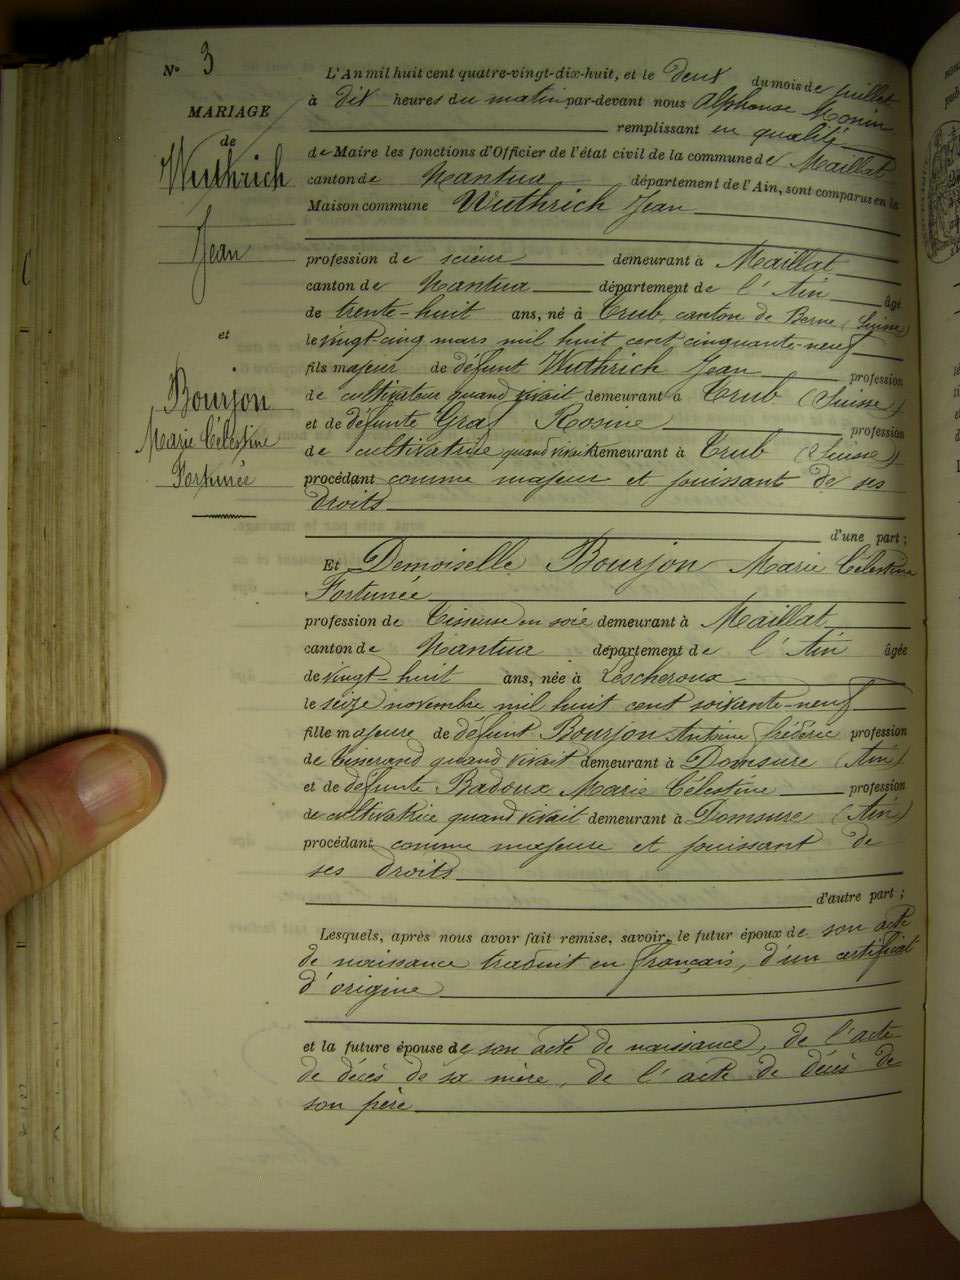 N° 3
MARIAGE
de
Wuthrich
Jean
et
Bourjon
Marie Célestine
Fortunée
L'An mil huit cent quatre-vingt-dix-huit, et le deux du mois de juillet
à dix heures du matin par-devant nous Alphonse Monin
remplissant en qualité
de Maire les fonctions d'Officier de l'état civil de la commune de Maillat
canton de Nantua département de l'Ain, sont comparus en la
Maison commune Wuthrich Jean
profession de scieur demeurant à Maillat
canton de Nantua département de l'Ain âgé
de trente-huit ans, né à Trub, canton de Berne (Suisse)
le vingt-cinq mars mil huit cent cinquante-neuf
fils majeur de défunt Wuthrich Jean profession
de cultivateur quand vivait demeurant à Trub (Suisse)
et de défunte Graf Rosine profession
de cultivatrice quand vivait demeurant à Trub (Suisse)
procédant comme majeur et jouissant de ses
droits
d'une part ;
Et Demoiselle Bourjon Marie Célestine
Fortunée
profession de Tisseuse en soie demeurant à Maillat
canton de Nantua département de l'Ain âgée
de vingt-huit ans, née à Lescheroux
le seize novembre mil huit cent soixante-neuf
fille majeure de défunt Bourjon Antoine Frédéric profession
de tisserand quand vivait demeurant à Domsure (Ain)
et de défunte Badoux Marie Célestine profession
de cultivatrice quand vivait demeurant à Domsure (Ain)
procédant comme majeure et jouissant de
ses droits
d'autre part ;
Lesquels, après nous avoir fait remise, savoir, le futur époux de son acte
de naissance traduit en français, d'un certificat
d'origine
et la future épouse de son acte de naissance, de l'acte
de décès de sa mère, de l'acte de décès de
son père